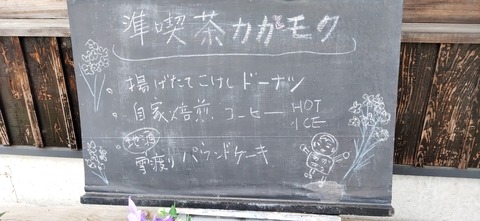 準喫茶カガモク
・揚げたてこけしドーナツ
・自家焙煎コーヒー HOT ICE
・地酒 雪渡りパウンドケーキ